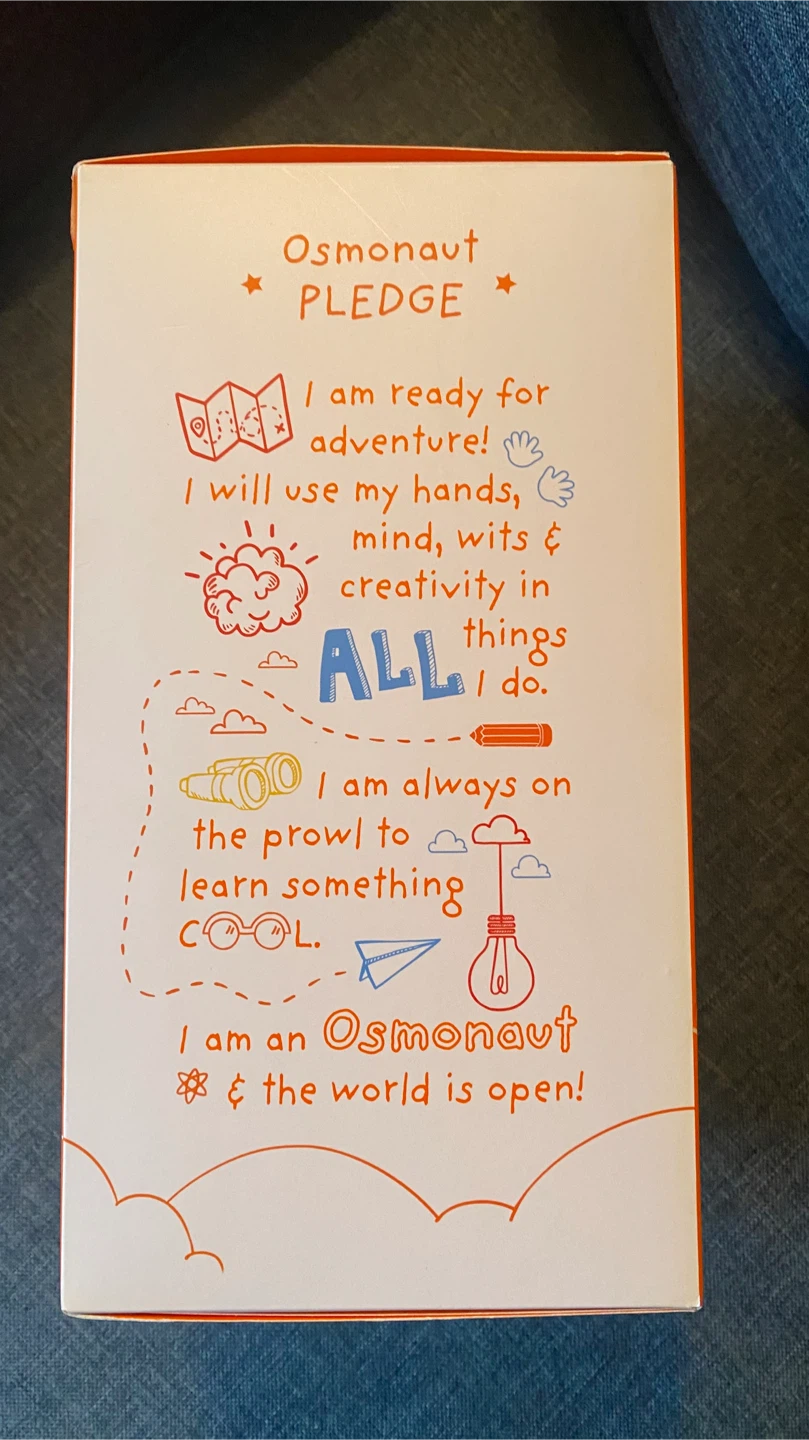 Osmonaut
PLEDGE
I am ready for
adventure!
I will use my hands,
mind, wits &
creativity in
ALL things
I do.
I am always on
the prowl to
learn something
COOL.
I am an Osmonaut
& the world is open!